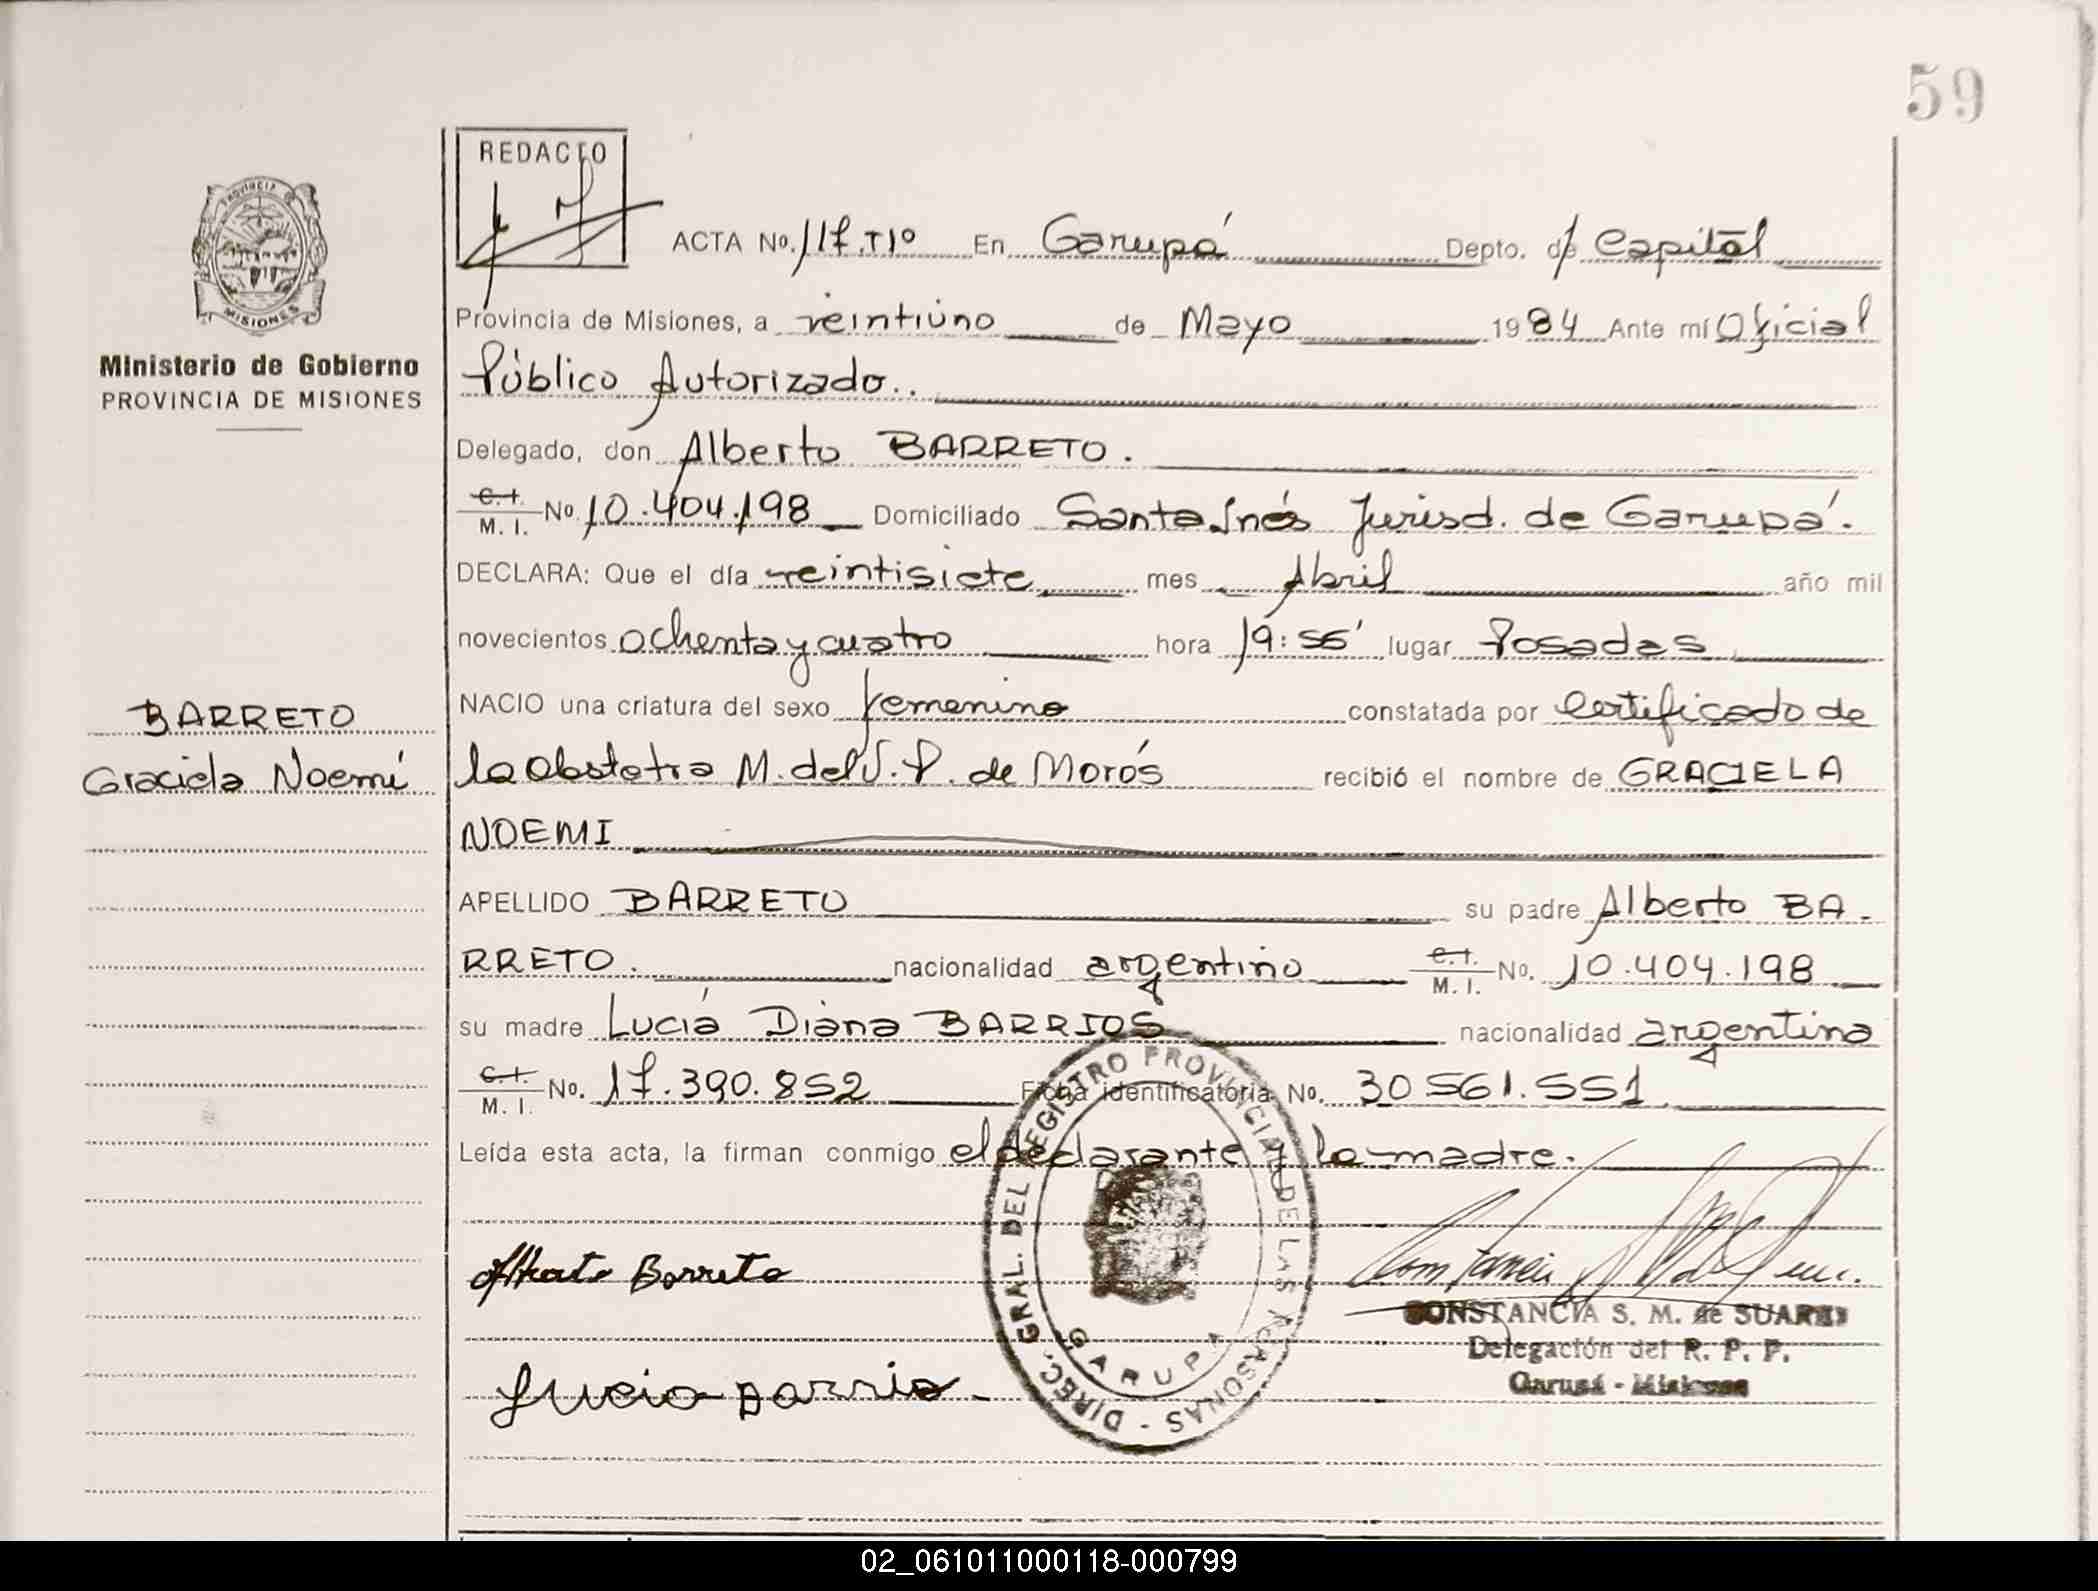 59
REDACTO
PROVINCIA
MISIONES
Ministerio de Gobierno
PROVINCIA DE MISIONES
ACTA No. 117.T1º En Garupá Depto. de Capital
Provincia de Misiones, a veintiuno de Mayo 1984 Ante mí Oficial
Público Autorizado..
Delegado, don Alberto BARRETO.
C.I. M. I. No. 10.404.198 Domiciliado Santa Inés Jurisd. de Garupá.
DECLARA: Que el día veintisiete mes Abril año mil
novecientos ochenta y cuatro hora 19:55' lugar Posadas
NACIO una criatura del sexo femenino constatada por certificado de
la obstetra M. del S. P. de Morós recibió el nombre de GRACIELA
NOEMI
BARRETO
Graciela Noemí
APELLIDO BARRETO su padre Alberto BA-
RRETO. nacionalidad argentino C.I. M. I. No. 10.404.198
su madre Lucía Diana BARRIOS nacionalidad argentina
C.I. M. I. No. 17.390.852 Ficha identificatoria No. 30561.551
Leída esta acta, la firman conmigo el declarante y la madre.
Alberto Barreto
DIREC. GRAL. DEL REGISTRO PROVINCIAL DE LAS PERSONAS - GARUPA
CONSTANCIA S. M. de SUAREZ
Delegación del R. P. P.
Garupá - Misiones
Lucia Barrio
02_061011000118-000799